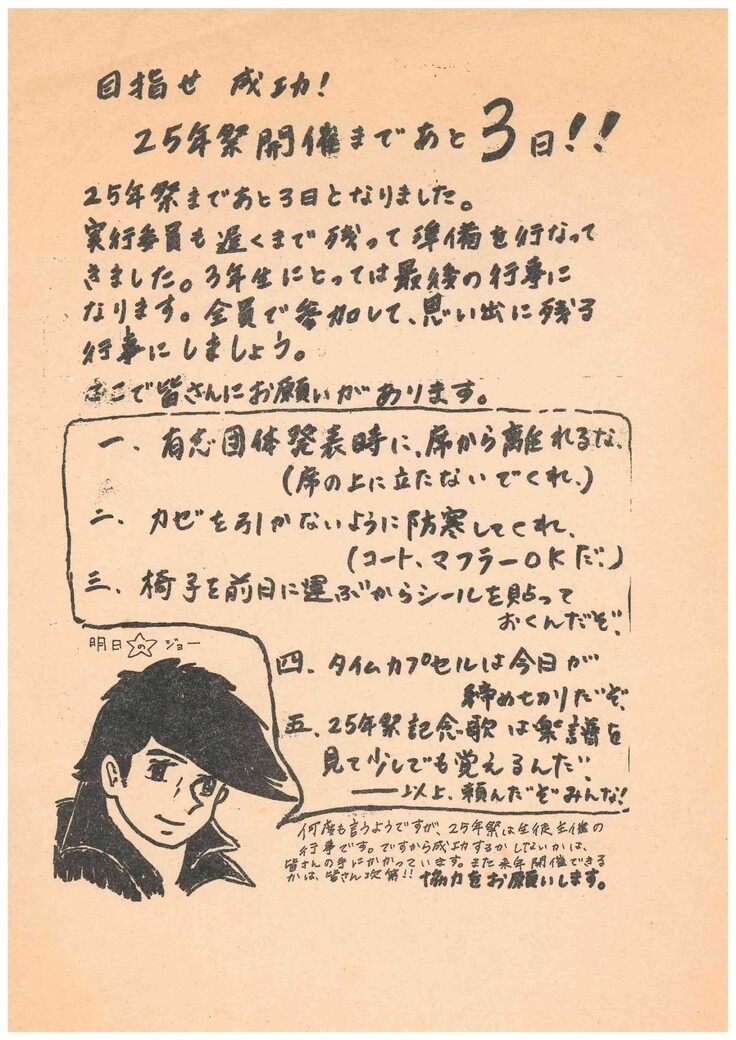 目指せ 成功!
25年祭開催まであと3日!!
25年祭まであと3日となりました。
実行委員も遅くまで残って準備を行なって
きました。3年生にとっては最後の行事に
なります。全員で参加して、思い出に残る
行事にしましょう。
そこで皆さんにお願いがあります。
一、有志団体発表時に、席から離れるな、
(席の上に立たないでくれ、)
二、カゼを引かないように防寒してくれ、
(コート、マフラーOKだ、)
三、椅子を前日に運ぶからシールを貼って
おくんだぞ、
明日の ジョー
四、タイムカプセルは今日が
締めセカりだぞ、
五、25年祭記念歌は楽譜を
見て少しでも覚えるんだ、
――以上、頼んだぞみんな!
何度も言うようですが、25年祭は生徒主催の
行事です。ですから成功するかしないかは、
皆さんの手にかかっています。また来年開催できる
かは、皆さん次第!! 協力をお願いします。